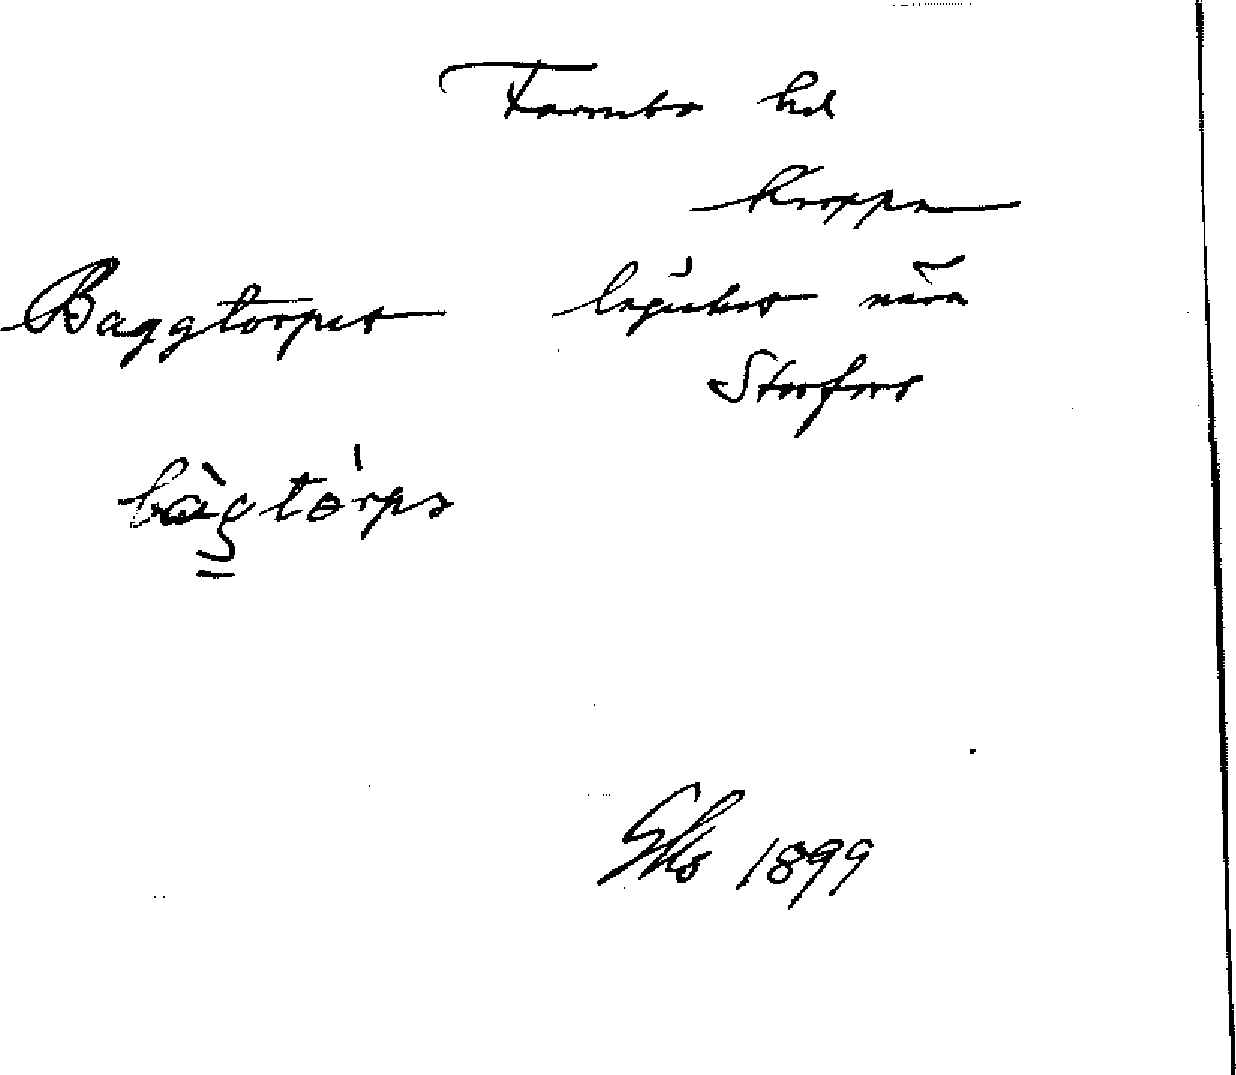 Färnebo hd
Kroppa
Baggtorpet lägenhet nära
Storfors
bàgtórps
1899